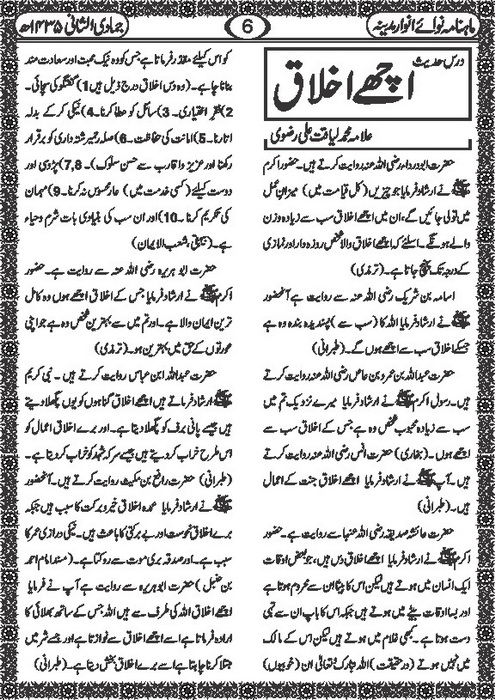 ماہنامہ نوائے انوار مدینہ
6
جمادی الثانی ۱۴۳۵ھ
درس حدیث
اچھے اخلاق
علامہ محمد لیاقت علی رضوی
حضرت ابودرداء رضی اللہ عنہ روایت کرتے ہیں۔ حضور اکرم
ﷺ نے ارشاد فرمایا جو چیزیں (کل قیامت میں) میزان عمل
میں تولی جائیں گے، ان میں اچھے اخلاق سب سے زیادہ وزن
والے ہونگے۔ اسلئے کہ اچھے اخلاق والا شخص روزہ دار اور نمازی
کے درجہ تک پہنچ جاتا ہے۔ (ترمذی)
اسامہ بن شریک رضی اللہ عنہ سے روایت ہے آنحضور
ﷺ نے ارشاد فرمایا اللہ کا (سب سے) پسندیدہ بندہ وہ ہے
جسکے اخلاق سب سے اچھے ہوں گے۔ (طبرانی)
حضرت عبداللہ بن عمرو بن عاص رضی اللہ عنہ روایت کرتے
ہیں۔ رسول اکرم ﷺ نے ارشاد فرمایا میرے نزدیک تم میں
سب سے زیادہ محبوب شخص وہ ہے جو کے اخلاق سب سے اچھے
ہوں۔ (بخاری) حضرت انس رضی اللہ عنہ روایت کرتے
ہیں۔ آپ ﷺ نے ارشاد فرمایا اچھے اخلاق جنت کے اعمال
ہیں۔ (طبرانی)
حضرت عائشہ صدیقہ رضی اللہ عنہا سے روایت ہے۔ حضور
اکرم ﷺ نے ارشاد فرمایا اچھے اخلاق دس ہیں، جو بعض اوقات
ایک انسان میں ہوتے ہیں لیکن اس کا بیٹا ان سے محروم ہوتا ہے
اور بسا اوقات بیٹے میں ہوتے ہیں جبکہ اس کا باپ ان سے تہی
دست ہوتا ہے۔ کبھی غلام میں ہوتے ہیں لیکن اس کے مالک
میں نہیں ہوتے (درحقیقت) اللہ تبارک تعالی ان (خوبیوں)
کو اس کیلئے مقدر فرماتا ہے جسکو وہ نیک بخت اور سعادت مند
بنانا چاہتا ہے۔ (وہ دس اخلاق درج ذیل ہیں 1) گفتگو کی سچائی۔
2) فقر اختیاری۔ 3) سائل کو عطا کرنا۔ 4) نیکی کر کے بدلہ
اتارنا۔ 5) امانت کی حفاظت۔ 6) صلہ رحمی رشتہ داری کو برقرار
رکھنا اور عزیز و اقارب سے حسن سلوک)۔ 7,8) پڑوی اور
دوست کیلئے (کسی خدمت میں) عار محسوس نہ کرنا۔ 9) مہمان
کی تکریم کرنا۔ 10) اور ان سب کی بنیادی بات شرم و حیاء
ہے۔ (بیہقی، شعب الایمان)
حضرت ابو ہریرہ رضی اللہ عنہ سے روایت ہے۔ حضور
اکرم ﷺ نے ارشاد فرمایا جس کے اخلاق اچھے ہوں وہ کامل
ترین ایمان والا ہے۔ اور تم میں سے بہترین شخص وہ ہے جو اپنی
عورتوں کے حق میں بہترین ہو۔ (ترمذی)
حضرت عبداللہ ابن عباس روایت کرتے ہیں۔ نبی کریم
ﷺ نے ارشاد فرمایا، اچھے اخلاق گناہوں کو یوں پگھلا دیتے
ہیں جیسے پانی برف کو پگھلا دیتا ہے۔ اور برے اخلاق اعمال کو
اس طرح خراب کر دیتے ہیں جیسے سرکہ شہد کو خراب کر دیتا ہے۔
(طبرانی) حضرت رافع بن مکیث روایت کرتے ہیں آپ
ﷺ نے ارشاد فرمایا عمدہ اخلاق خیر و برکت کا سبب ہیں جبکہ
برے اخلاق نحوست اور بے برکتی کا باعث ہیں۔ نیکی درازی عمر کا
سبب ہے۔ اور صدقہ بری موت سے روکتا ہے۔ (مسند امام احمد
بن حنبل) حضرت ابو ہریرہ سے روایت ہے آپ نے فرمایا
اچھے اخلاق اللہ کی طرف سے ہیں اللہ جس کے ساتھ بھلائی کا
ارادہ فرماتا ہے اسے اچھے اخلاق سے نوازتا ہے اور جسے شر میں
مبتلا کرنا چاہتا ہے اسے برے اخلاق بخش دیتا ہے۔ (طبرانی)